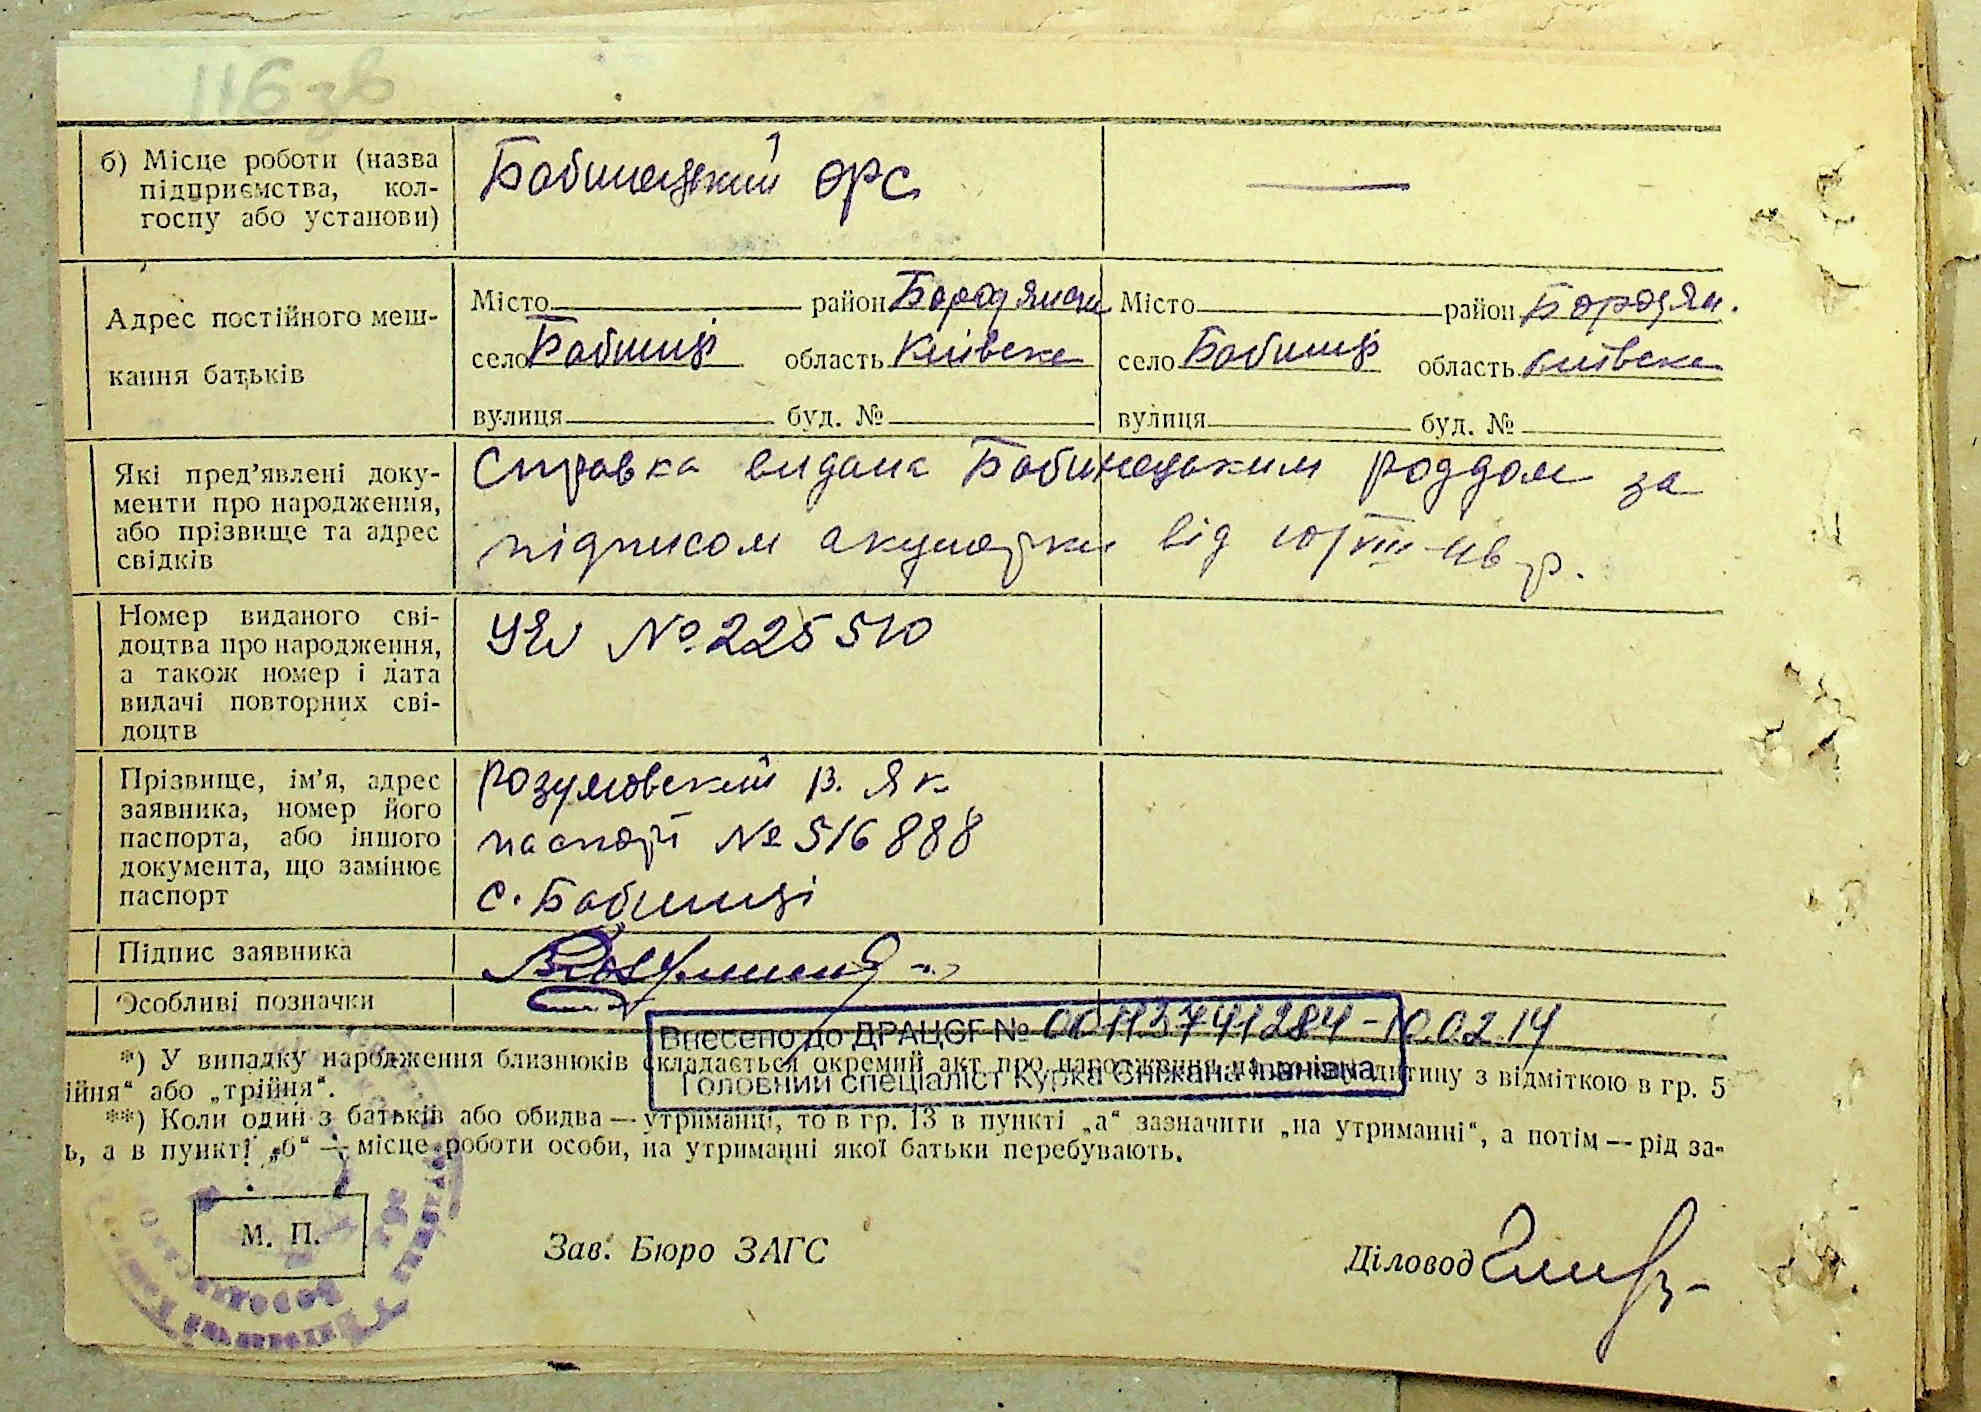 116 зв
б) Місце роботи (назва
підприємства, кол-
госпу або установи)
Бабинецький ОРС
Адрес постійного меш-
кання батьків
Місто район Бородянськ Місто район Бородян.
село Бабинці область Київська село Бабинці область Київська
вулиця буд. № вулиця буд. №
Які пред’явлені доку-
менти про народження,
або прізвище та адрес
свідків
Справка видана Бабинецьким роддом за
підписом акушерки від 10/VIII-46 р.
Номер виданого сві-
доцтва про народження,
а також номер і дата
видачі повторних сві-
доцтв
№ 225510
Прізвище, ім’я, адрес
заявника, номер його
паспорта, або іншого
документа, що замінює
паспорт
Розумовский В. Як
паспорт № 516888
с. Бабинці
Підпис заявника
Особливі позначки
Внесено до ДРАЦСГ № 00113741284-10.02.14
Головний спеціаліст Курка Сніжана Іванівна
*) У випадку народження близнюків складається окремий акт про народження на кожну дитину з відміткою в гр. 5
ійня“ або „трійня“.
**) Коли один з батьків або обидва — утриманці, то в гр. 13 в пункті „а“ зазначити „на утриманні“, а потім — рід за-
ь, а в пункті „б“ — місце роботи особи, на утриманні якої батьки перебувають.
М. П.
Зав. Бюро ЗАГС
Діловод